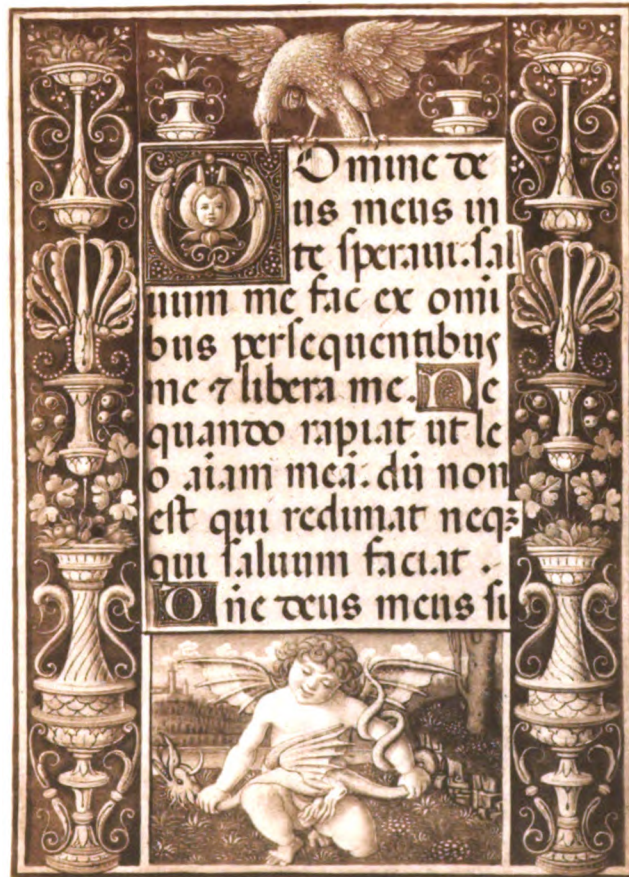 Domine de
us meus in
te speraui. sal
uum me fac ex omi
bus persequentibus
me ⁊ libera me. Ne
quando rapiat ut le
o aīam meā: dū non
est qui redimat neqꝫ
qui saluum faciat .
Dn̄e deus meus si